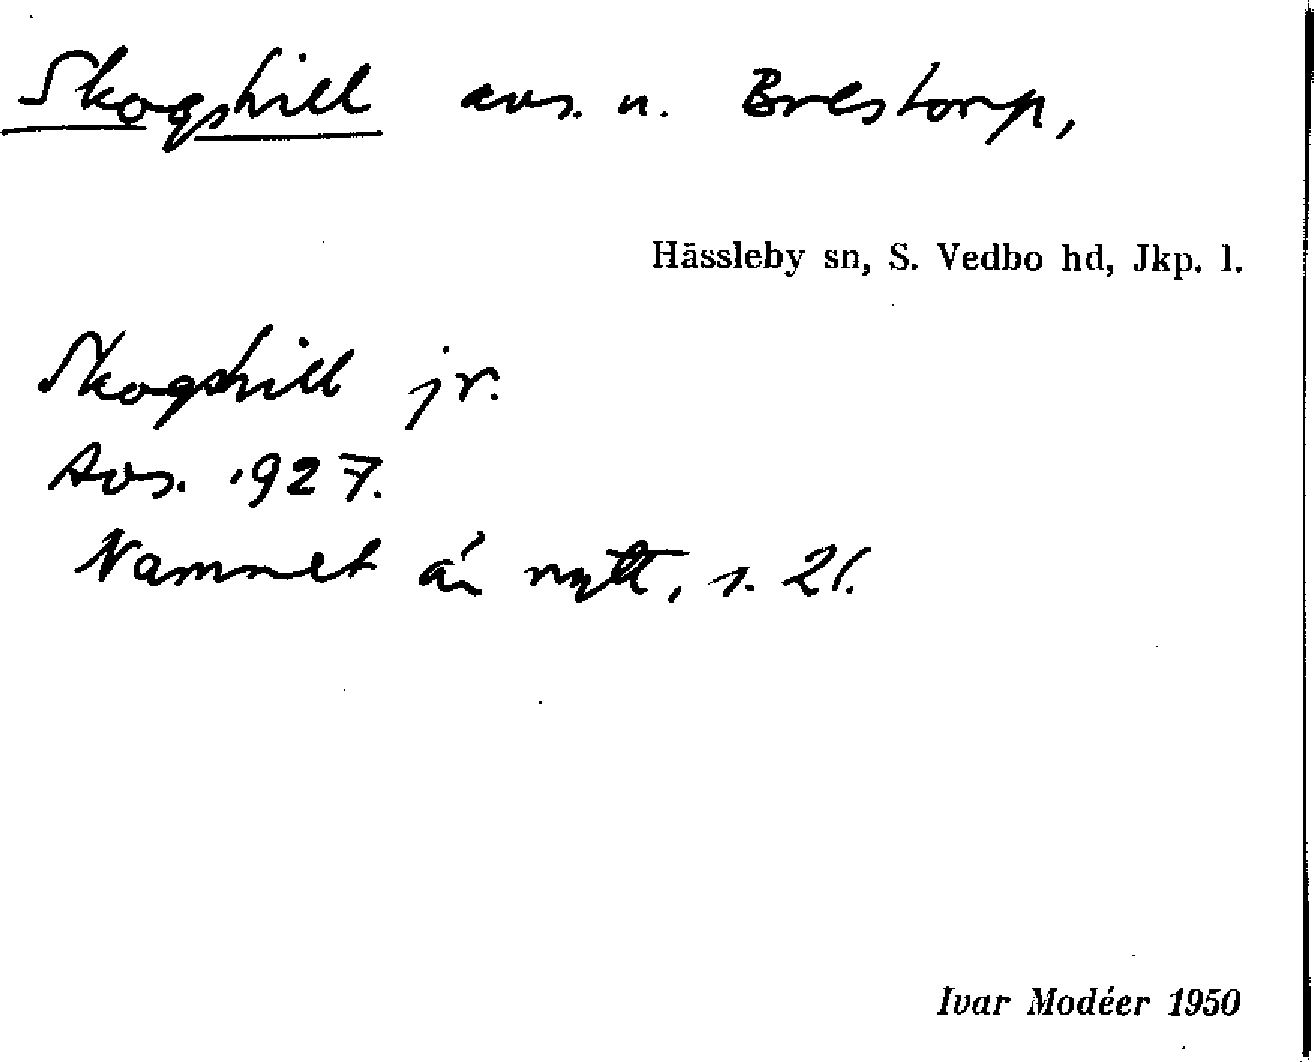 Skogshill avs. u. Brestorp,
Hässleby sn, S. Vedbo hd, Jkp. l.
Skogshill jr.
Avs. 1927.
Namnet är nytt, s. 21.
Ivar Modéer 1950